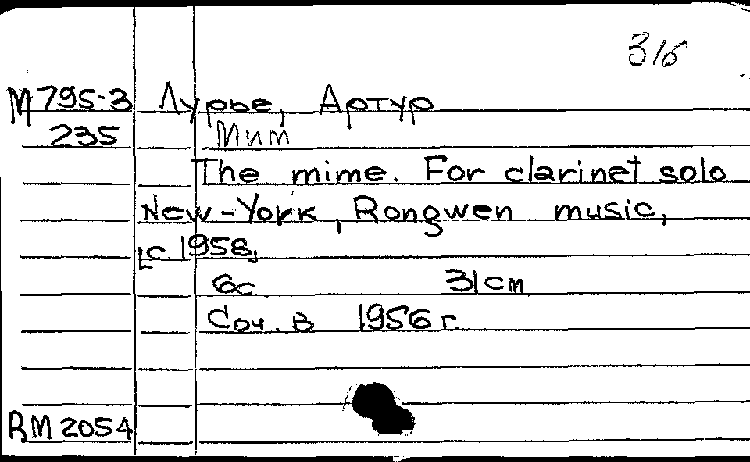 316
М 795-3 Лурье, Артур
235 Мим
The mime. For clarinet solo
New-York, Rongwen music,
[c. 1958]
6с 31 cm
Соч. в 1956 г.
RM 2054